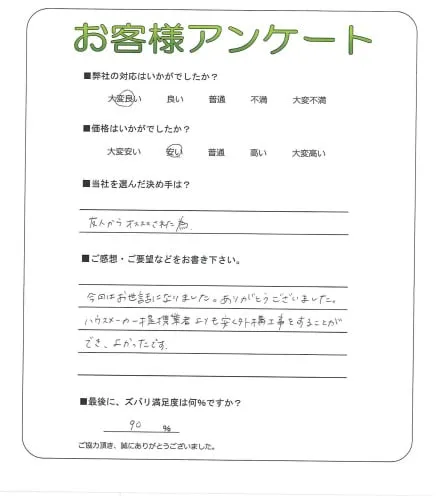 お客様アンケート
■弊社の対応はいかがでしたか？
大変良い 良い 普通 不満 大変不満
■価格はいかがでしたか？
大変安い 安い 普通 高い 大変高い
■当社を選んだ決め手は？
友人からオススメされた為
■ご感想・ご要望などをお書き下さい。
今回はお世話になりました。ありがとうございました。
ハウスメーカー提携業者よりも安く外構工事をすることが
でき、よかったです。
■最後に、ズバリ満足度は何％ですか？
90 ％
ご協力頂き、誠にありがとうございました。